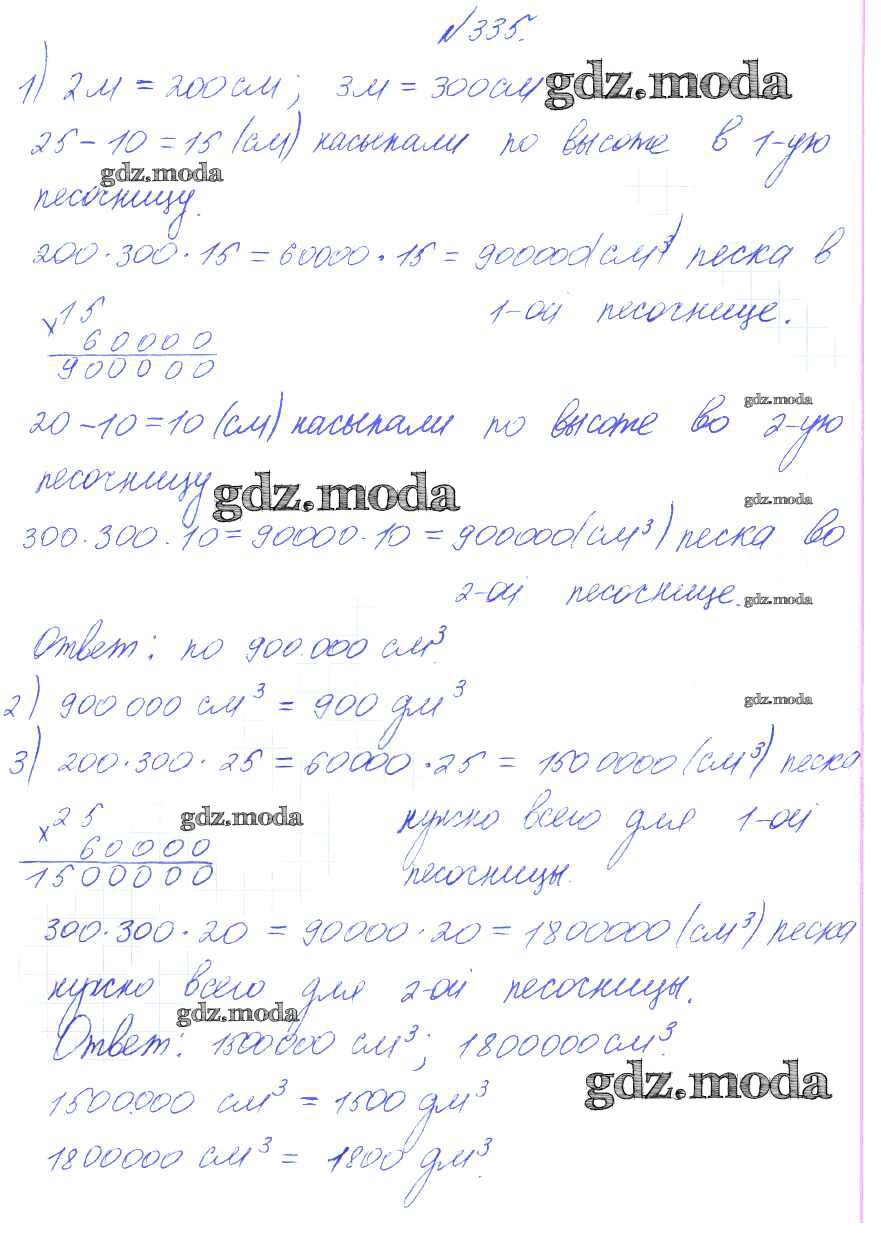 №335.
1) 2м = 200см; 3м = 300см gdz.moda
25 - 10 = 15 (см) насыпали по высоте в 1-ую
gdz.moda
песочницу.
200 · 300 · 15 = 60000 · 15 = 900000(см³) песка в
1-ой песочнице.
× 15
60000
900000
gdz.moda
20 - 10 = 10 (см) насыпали по высоте во 2-ую
песочницу gdz.moda gdz.moda
300 · 300 · 10 = 90000 · 10 = 900000(см³) песка во
2-ой песочнице. gdz.moda
Ответ: по 900.000 см³.
2) 900 000 см³ = 900 дм³ gdz.moda
3) 200 · 300 · 25 = 60000 · 25 = 1500000 (см³) песка
× 25 gdz.moda нужно всего для 1-ой
60000
1500000 песочницы.
300 · 300 · 20 = 90000 · 20 = 1800000 (см³) песка
нужно всего для 2-ой песочницы.
gdz.moda
Ответ: 1500000 см³; 1800000см³.
gdz.moda
1500.000 см³ = 1500 дм³
1800000 см³ = 1800 дм³.